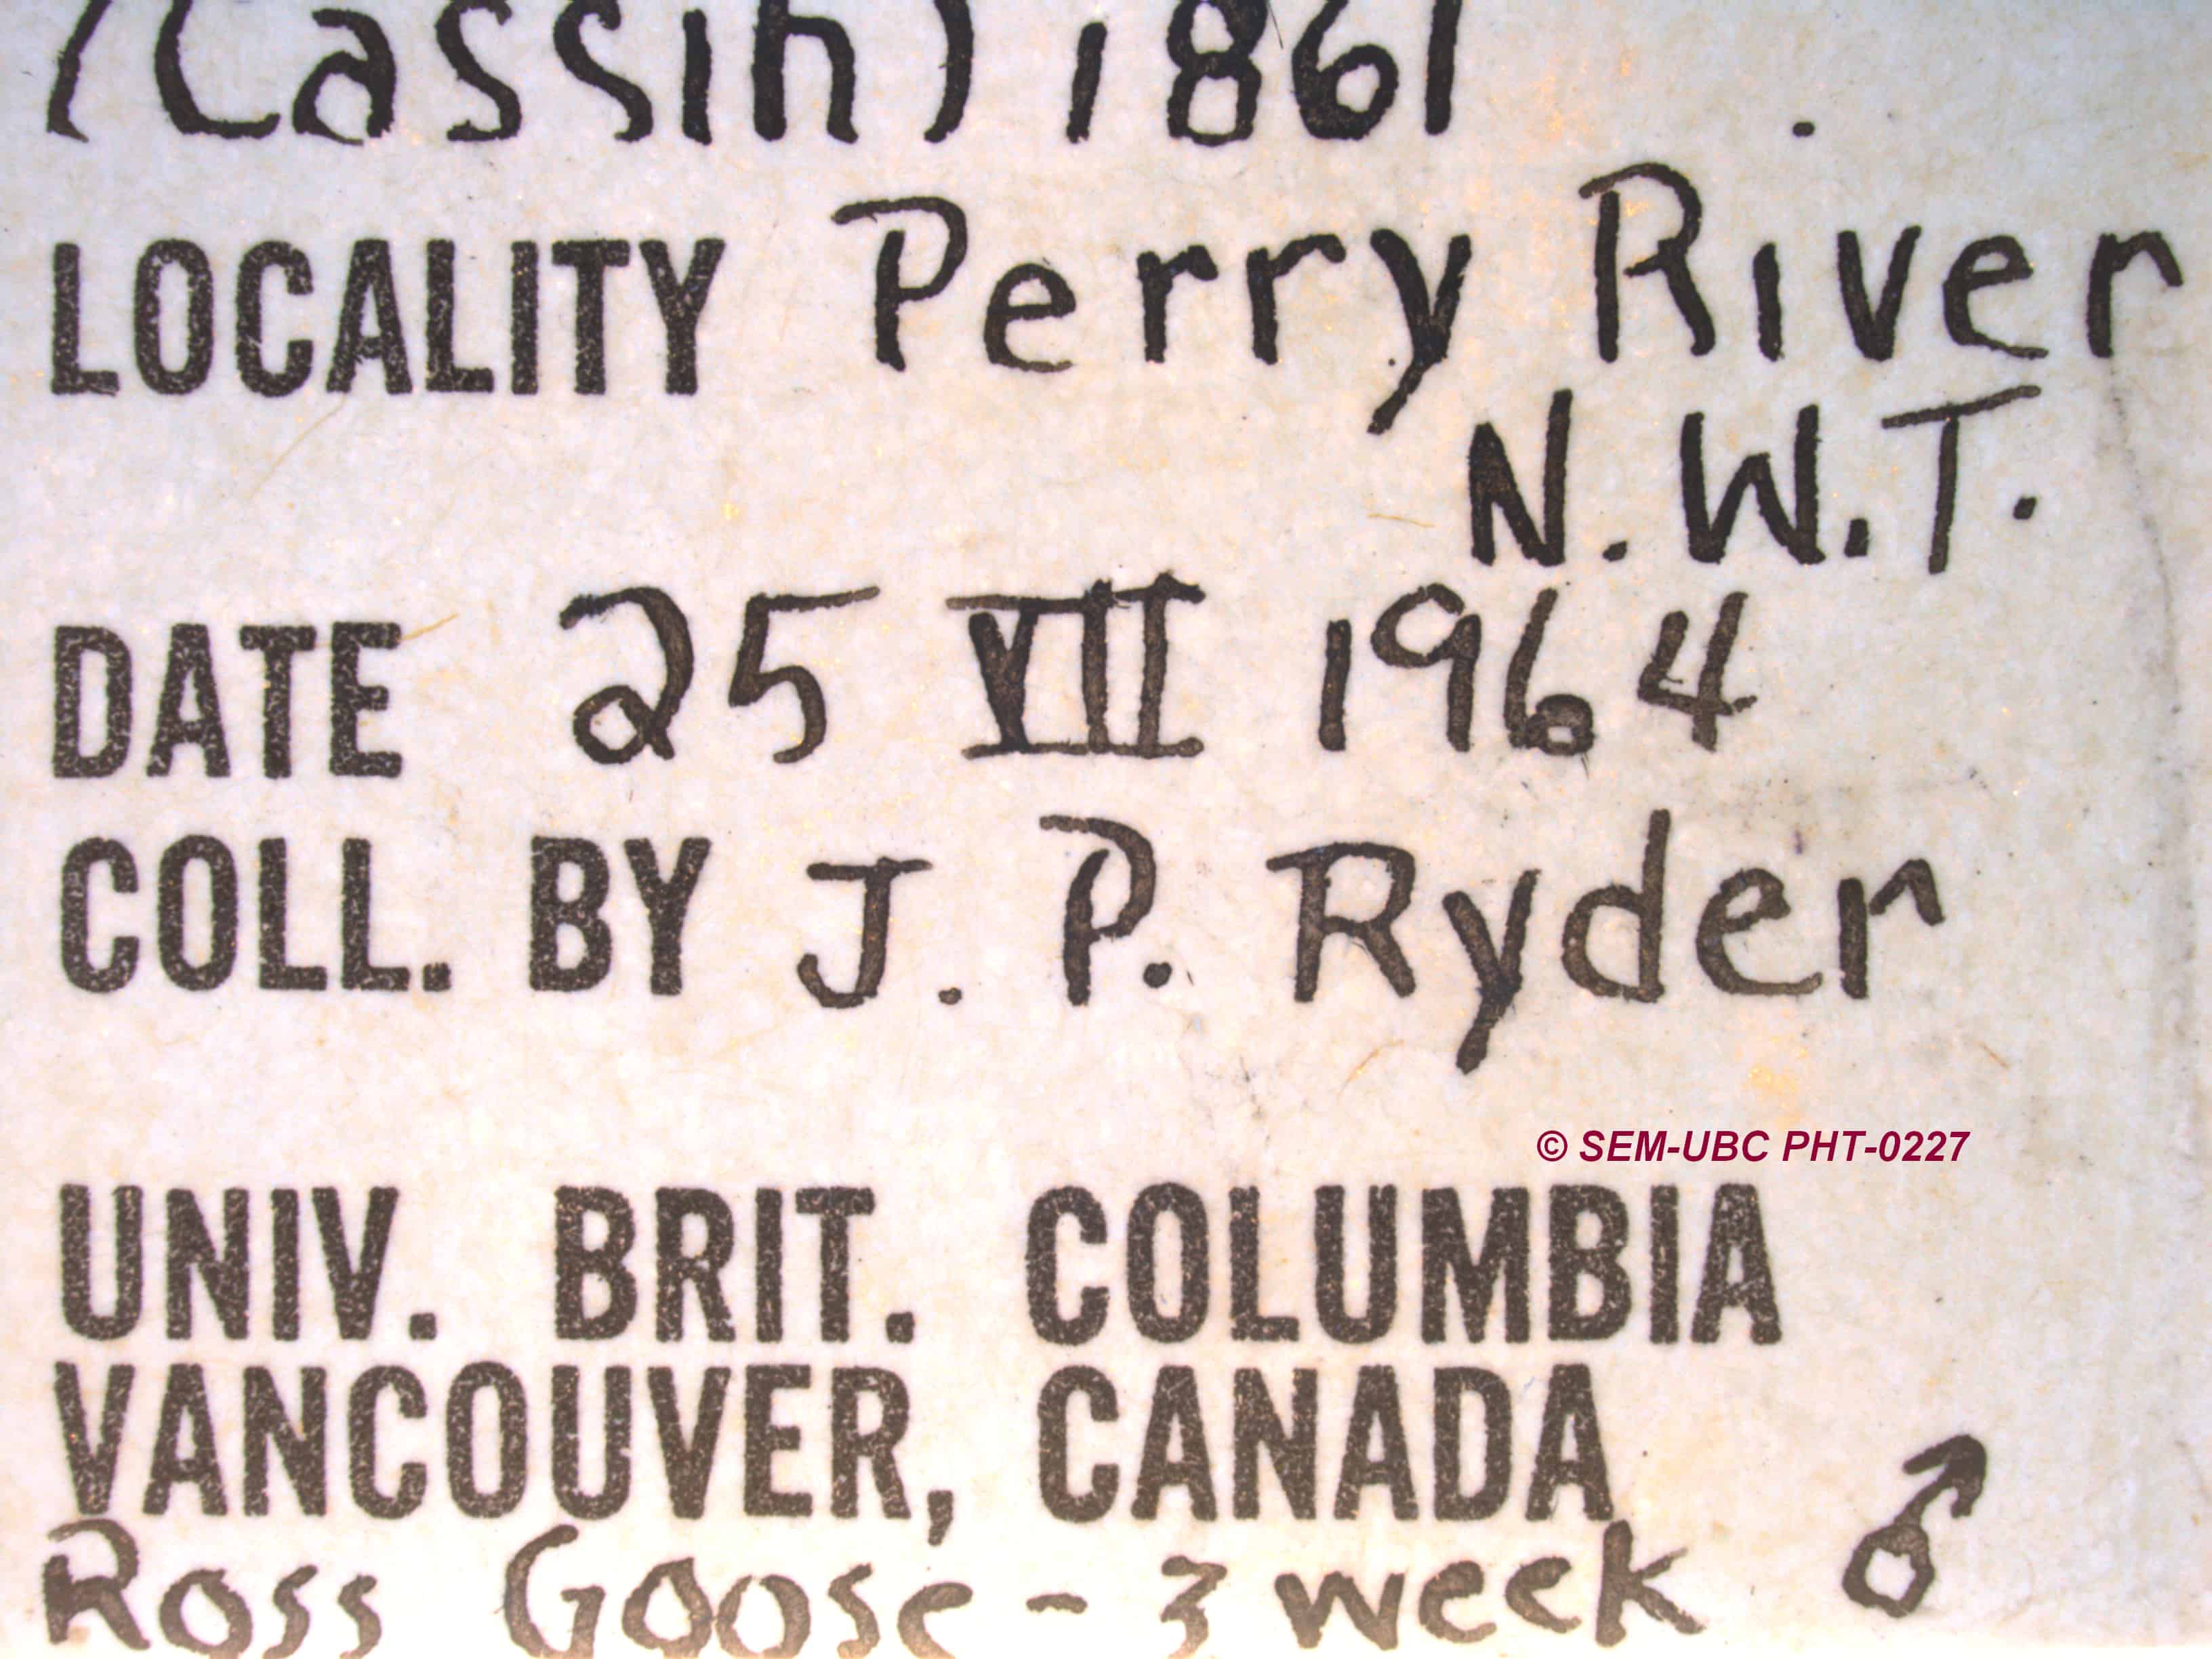 (Cassin) 1861
LOCALITY Perry River
N.W.T.
DATE 25 VII 1964
COLL. BY J. P. Ryder
© SEM-UBC PHT-0227
UNIV. BRIT. COLUMBIA
VANCOUVER, CANADA
Ross Goose - 3 week ♂